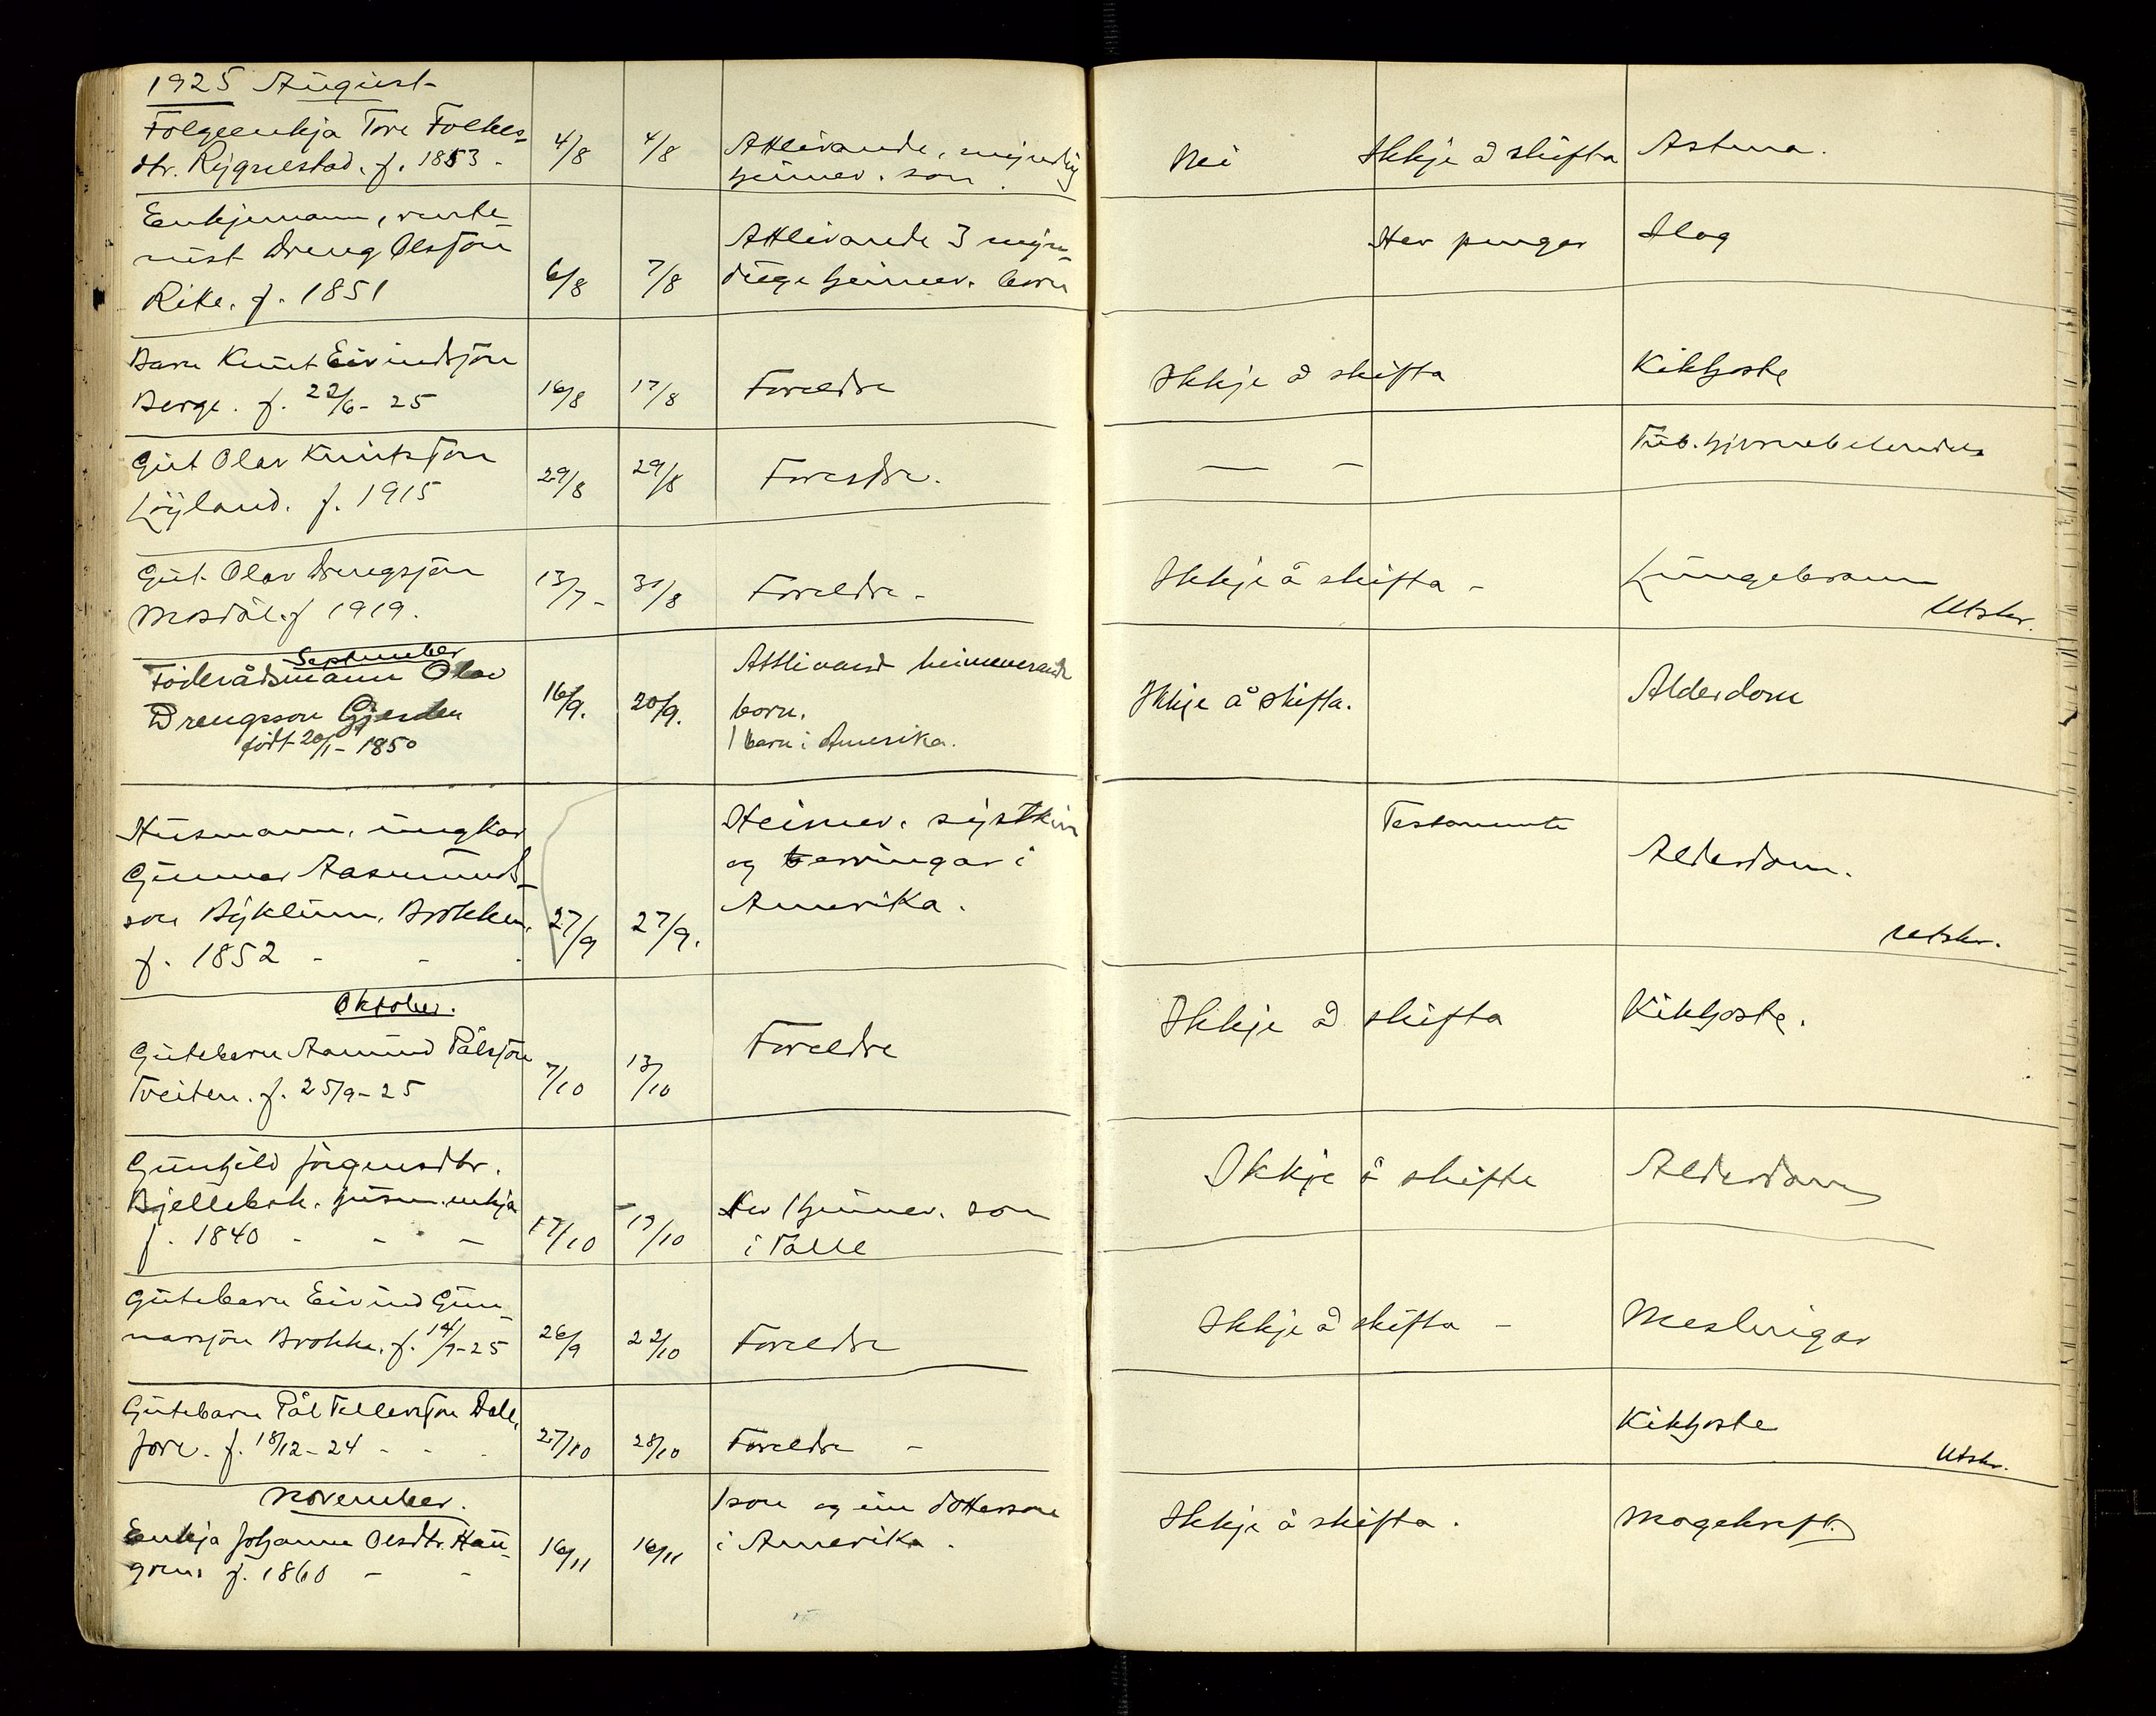 1925 August
Folgeenkja Tore Folkes-
dtr. Rygnestad. f. 1853 -
4/8
4/8
Attlivande, myndig
heimev. son.
Nei
Ikkje å skifta
Astma.
Enkjemann, rente-
nist Dreng Olsson
Rike. f. 1851
6/8
7/8
Attlivande 3 myn-
duge heimev. born
Hev pengar
Slag
Barn Knut Eivindsson
Berge. f. 22/6 - 25
16/8
17/8
Foreldre
Ikkje å skifta
Kikhoste
Gut Olav Knutsson
Løyland. f. 1915
29/8
29/8
Foreldre.
— —
Tub. hjernebetendelse
Gut Olav Drengsson
Mosdøl. f 1919.
13/7 -
31/8
Foreldre -
Ikkje å skifta -
Lungebrann
Utskr.
September
Föderådsmann Olav
Drengsson Gjerden
født 20/1 - 1850
16/9.
20/9.
Attlivand heimeverande
born.
1 barn i Amerika.
Ikkje å skifta.
Alderdom
Husmann, ungkar
Gunnar Aasmunds-
son Byklum, Brokken.
f. 1852 - - -
27/9
27/9.
Heimev. systkin
og ervingar i
Amerika.
Testamente
Alderdom.
Utskr.
Oktober.
Gutebarn Aamund Pålsson
Tveiten. f. 25/9 - 25
7/10
13/10
Foreldre
Ikkje å skifta
Kikhoste.
Gunhild Jörgensdtr.
Bjellebek. husm.enkja
f. 1840 - - -
17/10
19/10
Hev 1 heimev. son
i Valle
Ikkje å skifte
Alderdom
Gutebarn Eivind Gun-
narsson Brokke. f. 14/9 - 25
26/9
22/10
Foreldre
Ikkje å skifta -
Meslingar
Gutebarn Pål Tellevsson Dale,
jore. f. 18/12 - 24 - - -
27/10
28/10
Foreldre -
Kikhoste
Utskr.
November.
Enkja Johanne Olsdtr. Hau-
gen. f. 1860 - -
16/11
16/11
1 son og ein dotterson
i Amerika.
Ikkje å skifta.
Magekreft.